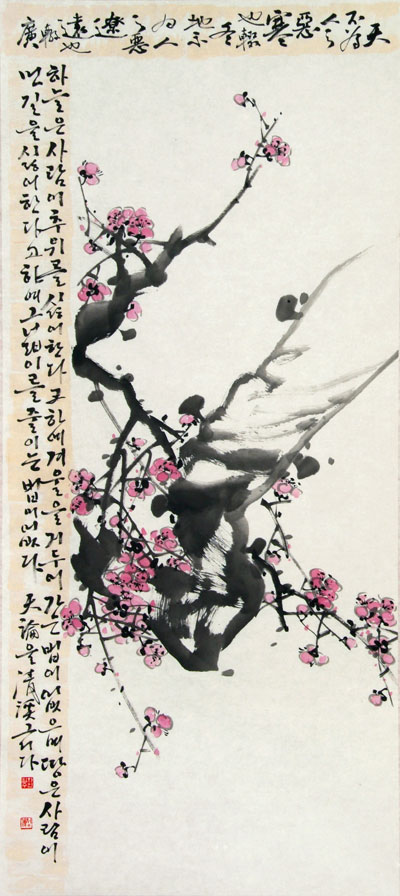 天不爲人之惡寒也輟冬地不爲人之惡遼遠也輟廣
하늘은 사람이 추위를 싫어한다고 하여 겨울을 거두어 가는 법이 없으며 땅은 사람이
먼 길을 싫어한다고 하여 그 넓이를 줄이는 법이 없다 天論을 清溪